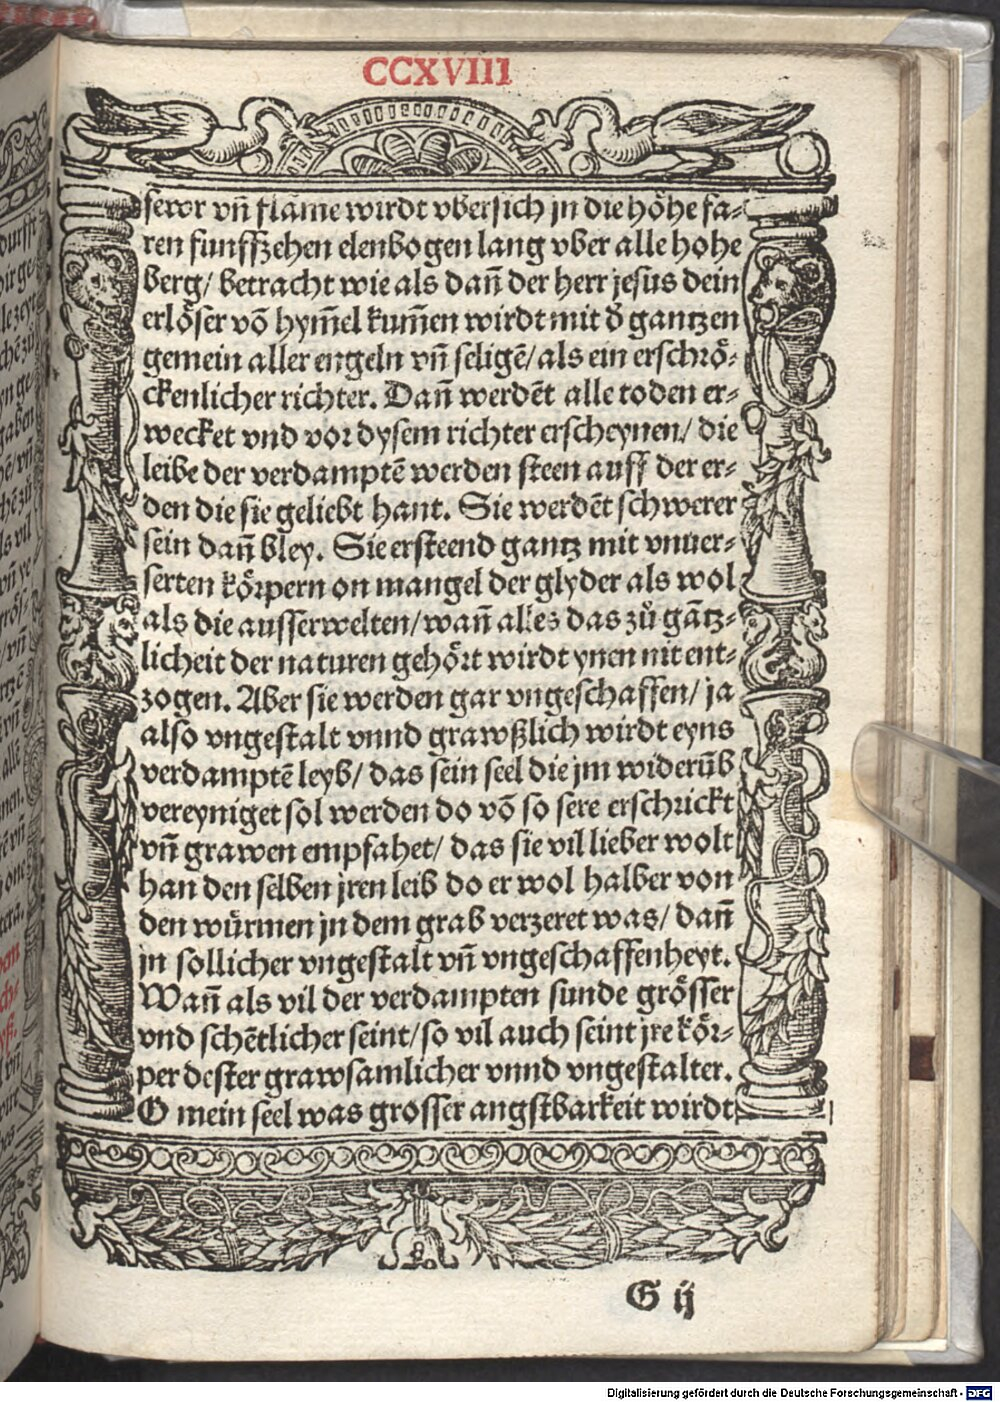 CCXVIII
fewr vñ flãme wirdt vbersich jn die höhe fa⸗
ren funffzehen elenbogen lang vber alle hohe
berg/ betracht wie als dañ der herr jesus dein
erlöser võ hym̃el kum̃en wirdt mit d̕ gantzen
gemein aller engeln vñ seligẽ/ als ein erschrö⸗
ckenlicher richter. Dañ werdẽt alle toden er⸗
wecket vnd vor dysem richter erscheynen/ die
leibe der verdamptẽ werden steen auff der er⸗
den die sie geliebt hant. Sie werdẽt schwerer
sein dañ bley. Sie ersteend gantz mit vnuer⸗
serten körpern on mangel der glyder als wol
als die ausserwelten/ wañ alles das zů gãtz⸗
licheit der naturen gehört wirdt ynen nit ent⸗
zogen. Aber sie werden gar vngeschaffen/ ja
also vngestalt vnnd grawßlich wirdt eyns
verdamptẽ leyb/ das sein seel die jm widerũb
vereyniget sol werden do võ so sere erschrickt
vñ grawen empfahet/ das sie vil lieber wolt
han den selben jren leib do er wol halber von
den würmen jn dem grab verzeret was/ dañ
jn sollicher vngestalt vñ vngeschaffenheyt.
Wañ als vil der verdampten sunde grösser
vnd schẽtlicher seint/ so vil auch seint jre kör⸗
per dester grawsamlicher vnnd vngestalter.
O mein seel was grosser angstbarkeit wirdt
G ij
Digitalisierung gefördert durch die Deutsche Forschungsgemeinschaft - DFG